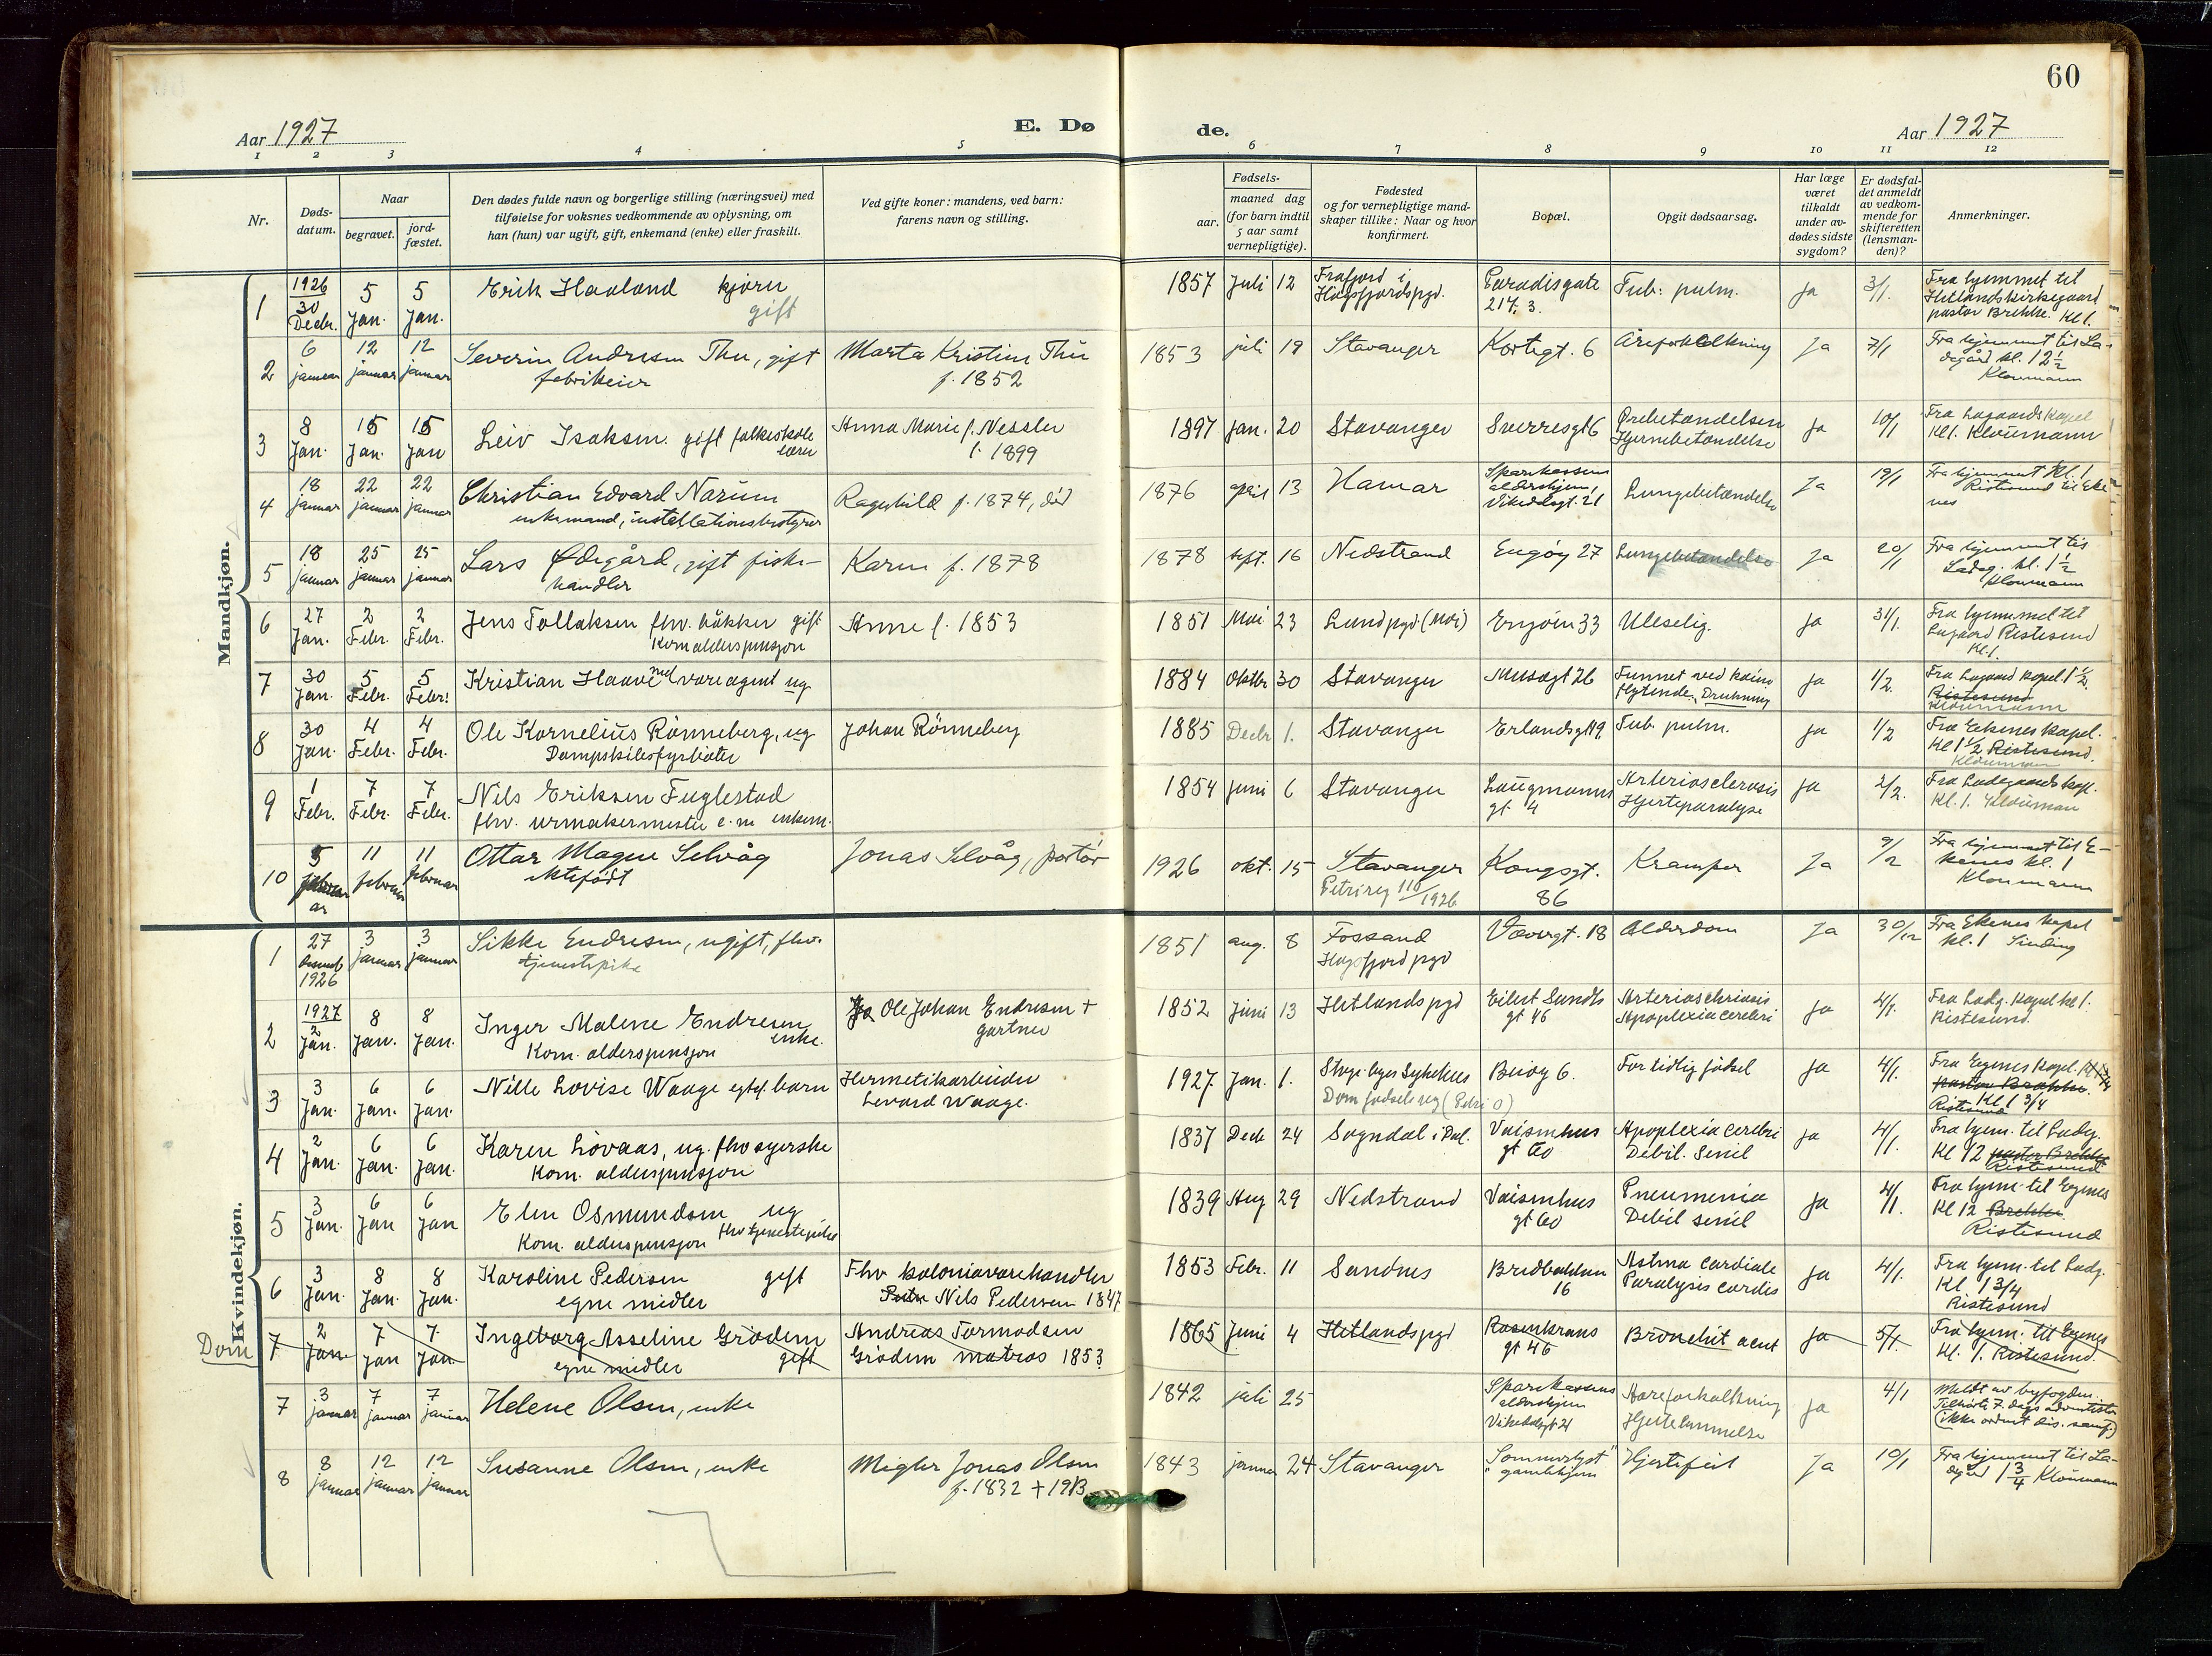 60
Aar 1927
E. Dø
de.
Aar 1927
1 2 3 4 5 6 7 8 9 10 11 12
Nr.
Døds-
datum.
Naar
begravet.
jord-
fæstet.
Den dødes fulde navn og borgerlige stilling (næringsvei) med
tilføielse for voksnes vedkommende av oplysning, om
han (hun) var ugift, gift, enkemand (enke) eller fraskilt.
Ved gifte koner: mandens, ved barn:
farens navn og stilling.
Fødsels-
aar.
maaned dag
(for barn indtil
5 aar samt
vernepligtige).
Fødested
og for vernepligtige mand-
skaper tillike: Naar og hvor
konfirmert.
Bopæl.
Opgit dødsaarsag.
Har læge
været
tilkaldt
under av-
dødes sidste
sygdom?
Er dødsfal-
det anmeldt
av vedkom-
mende for
skifteretten
(lensman-
den)?
Anmerkninger.
Mandkjøn.
1
1926
30
Decbr.
5
Jan.
5
Jan.
Erik Haaland
gift
1857 Juli 12
Frafjord i
Høgsfjordspgd.
Paradisgate
Tub. pulm.
Ja
3/1.
Fra hjemmet til
Hetlandskirkegaard
pastor Brekke. Kl 1.
2
6
januar
12
januar
12
januar
Severin Andresen Thu, gift
fabrikeier
Marta Kristine Thu
f. 1852
1853 juli 19
Stavanger
Kortegt. 6
Åreforkalkning
Ja
7/1
Fra hjemmet til La-
degård kl. 12 1/2
Kloumann
3
8
Jan.
15
Jan.
15
Jan
Leiv Isaksen. gift folkeskole
lærer
Anna Marie f. Nessler
f. 1899
1897 Jan. 20
Stavanger
Sverresgt 6
Ørebetændelse
Hjernebetændelse
Ja
10/1
Fra Lagaards Kapel
Kl 1. Kloumann
4
18
januar
22
januar
22
januar
Christian Edvard Narum
enkemand, installationsbestyrer
Ragnhild f. 1874, død
1876 april 13
Hamar
Sparekassens
aldershjem,
Vikedalsgt. 21
Lungebetændelse
Ja
19/1
Fra hjemmet kl. 1
Ristesund til Eke
nes
5
18
januar
25
januar
25
januar
Lars Ødegård, gift fiske-
handler
Karen f. 1878
1878 sept. 16
Nedstrand
Engøy 27
Lungebetændelse
Ja
20/1
Fra hjemmet til
Ladeg. kl. 1 1/2
Kloumann
6
27
Jan.
2
Febr.
2
Febr.
Jens Tollaksen fhv. bøkker gift
Kom alderspensjon
Anne f. 1853
1851 Mai 23
Lund pgd (Moi)
Engøien 33
Uleselig.
Ja
31/1.
Fra hjemmet til
Lagaard Ristesund
Kl 1.
7
30
Jan.
5
Febr.
5
Febr.
Kristian Haaven vareagent ug
1884 Oktbr 30
Stavanger
Musegt 26
Funnet ved kaien
flytende. Drukning
Ja
1/2.
Fra Lagaard Kapel 1 1/2.
Ristesund
Kloumann
8
30
Jan.
4
Febr.
4
Febr.
Ole Kornelius Rønneberg, ug
Dampskibsfyrbøter
Johan Rønneberg
1885 Decbr 1.
Stavanger
Erlandsgt 19.
Tub. pulm.
Ja
1/2
Fra Ekenes kapel.
Kl 1 1/2 Ristesund.
Kloumann
9
1
Febr.
7
Febr.
7
Febr.
Nils Eriksen Fuglestad
fhv. urmakermester e.m enkem.
1854 Juni 6
Stavanger
Laugmanns
gt 4
Arteriosclerosis
Hjerteparalyse
Ja
2/2.
Fra Ladegaards kap.
Kl. 1. Klouman
10
5
februar
11
februar
11
februar
Ottar Magne Selvåg
ektefødt
Jonas Selvåg, portør
1926 okt. 15
Stavanger
Petri reg 110/1926
Kongsgt.
86
Kramper
Ja
9/2
Fra hjemmet til E-
kenes kl. 1
Kloumann
Kvindekjøn.
1
27
1926
3
januar
3
januar
Sikke Endresen, ugift, fhv.
tjenestepike
1851 aug. 8
Fossand
Høgsfjord pgd
Vævergt. 18
Alderdom
Ja
30/12
Fra Ekenes kapel
kl. 1 Sinding
2
1927
2
Jan.
8
Jan.
8
Jan.
Inger Malene Endresen
enke.
Kom. alderspensjon
Ole Johan Endresen +
gartner
1852 Juni 13
Hetlands pgd
Eilert Sundts
gt 46
Arteriosclerosis
Apoplexia cerebri
Ja
4/1.
Fra Ladg. Kapel kl 1.
Ristesund.
3
3
Jan.
6
Jan.
6
Jan.
Nille Lovise Waage egtef. barn
Hermetikarbeider
Levard Waage.
1927 Jan. 1.
Dom fødsels reg (Petri 0)
Buøy 6.
For tidlig fødsel
Ja
4/1.
Fra Egenes kapel.
pastor Brekke.
Kl 1 3/4
Ristesund
4
2
Jan.
6
Jan.
6
Jan.
Karen Lovaas, ug. fhv syerske
Kom. alderspensjon
1837 Decb 24
Sogndal i Dal.
Vaisenhus
gt 60
Apoplexia cerebri
Debil. Senil
Ja
4/1.
Fra hjem. til Ladg.
Kl 12 pastor Brekke
Ristesund
5
3
Jan.
6
Jan.
6
Jan
Elen Osmundsen ug
Kom. alderspensjon fhv tjenestepike
1839 Aug 29
Nedstrand
Vaisenhus
gt 60
Pneumonia
Debil senil
Ja
4/1.
Fra hjem. til Egenes
Kl 12 Brekke.
Ristesund
6
3
Jan.
8
Jan.
8
Jan.
Karoline Pedersen gift
egne midler
Fhv kolonialvarehandler
Nils Pedersen 1847
1853 Febr. 11
Sandnes
Bredbakken
16
Astma cardiale
Paralysis cordis
Ja
4/1.
Fra hjem. til Ladg.
Kl. 1 3/4
Ristesund
Dom
7
2
Jan.
7
Jan
7
Jan.
Ingeborg Asseline Grødem
egne midler gift
Andreas Tormodsen
Grødem matros 1853
1865 Juni 4
Hetlands pgd
Rosenkrans
gt 46
Bronchit acut
Ja
5/1.
Fra hjem. til Egenes
Kl. 1. Ristesund.
7
3
januar
7
januar
7
januar
Helene Olsen, enke
1842 juli 25
Sparekassens
aldershjem
Vikedalsgt 21
Aareforkalkning
Hjertelammelse
Ja
4/1
Meldt av byfogden.
Tilhørte 7. dags adventister
(ikke ordnet dis. samf.)
8
8
januar
12
januar
12
januar
Susanne Olsen, enke
Megler Jonas Olsen
f. 1832 + 1913
1843 januar 24
Stavanger
"Sommerlyst"
gamlehjem
Hjertefeil
Ja
10/1
Fra hjemmet til La-
degård 1 3/4 Kloumann